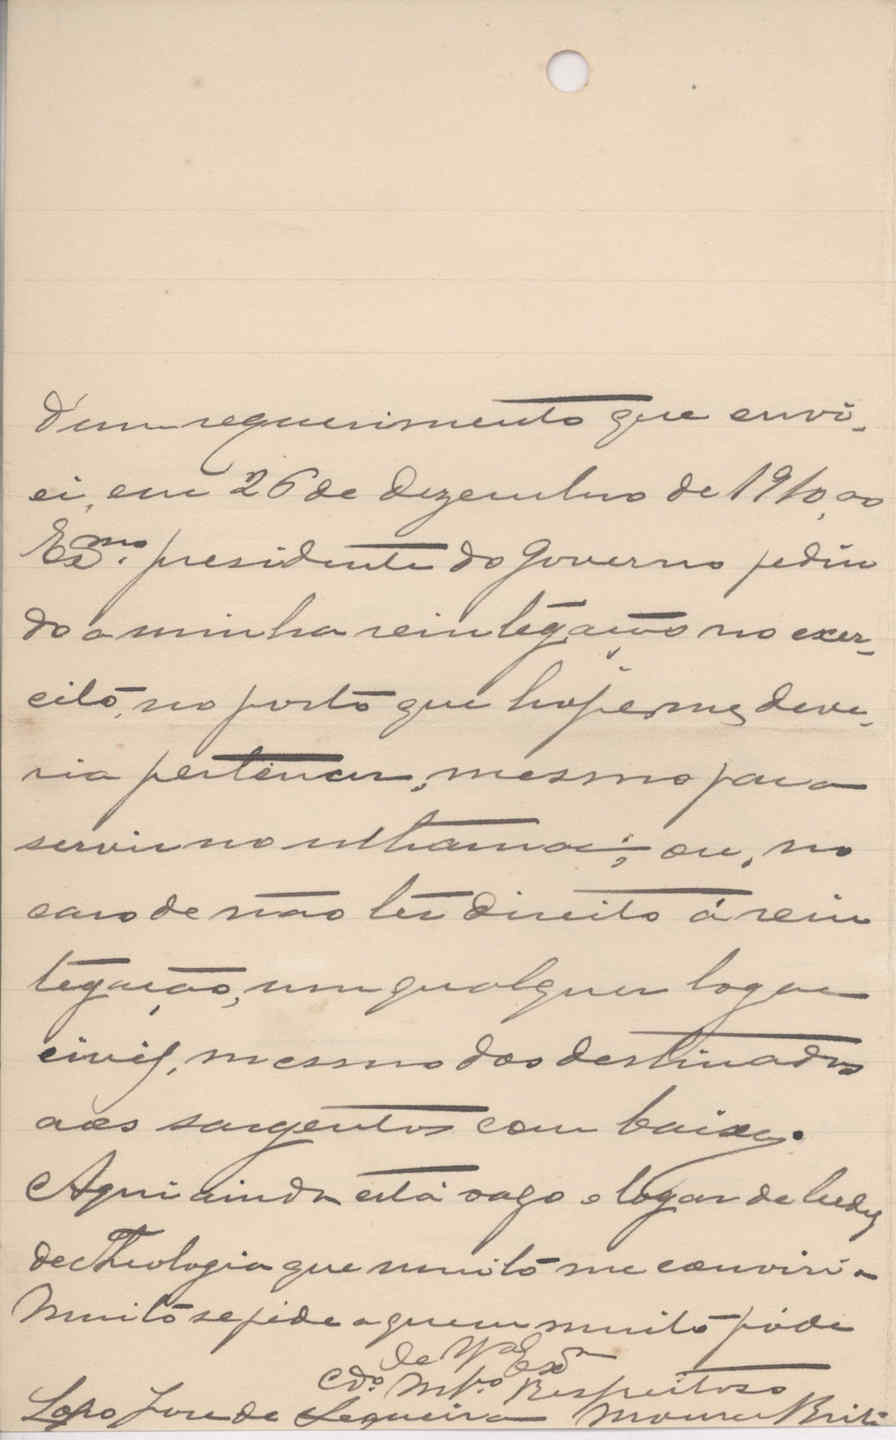 d'um requerimento que envi-
ei, em 26 de Dezembro de 1910, ao
Exmo. presidente do Governo pedin
do a minha reintegação no exer-
cito, no posto que hoje me deve-
ria pertencer, mesmo para
servir no ultramar; ou, no
caso de não ter direito á rein
tegação, um qualquer logar
civil, mesmo dos destinados
aos sargentos com baixa.
Aqui ainda está vago o logar de
de Theologia que muito me conviria
Muito se pede a quem muito póde
De Va Exa
Cdo. Mto. Respeitoso
Lopo José de Sequeira Moura Brito